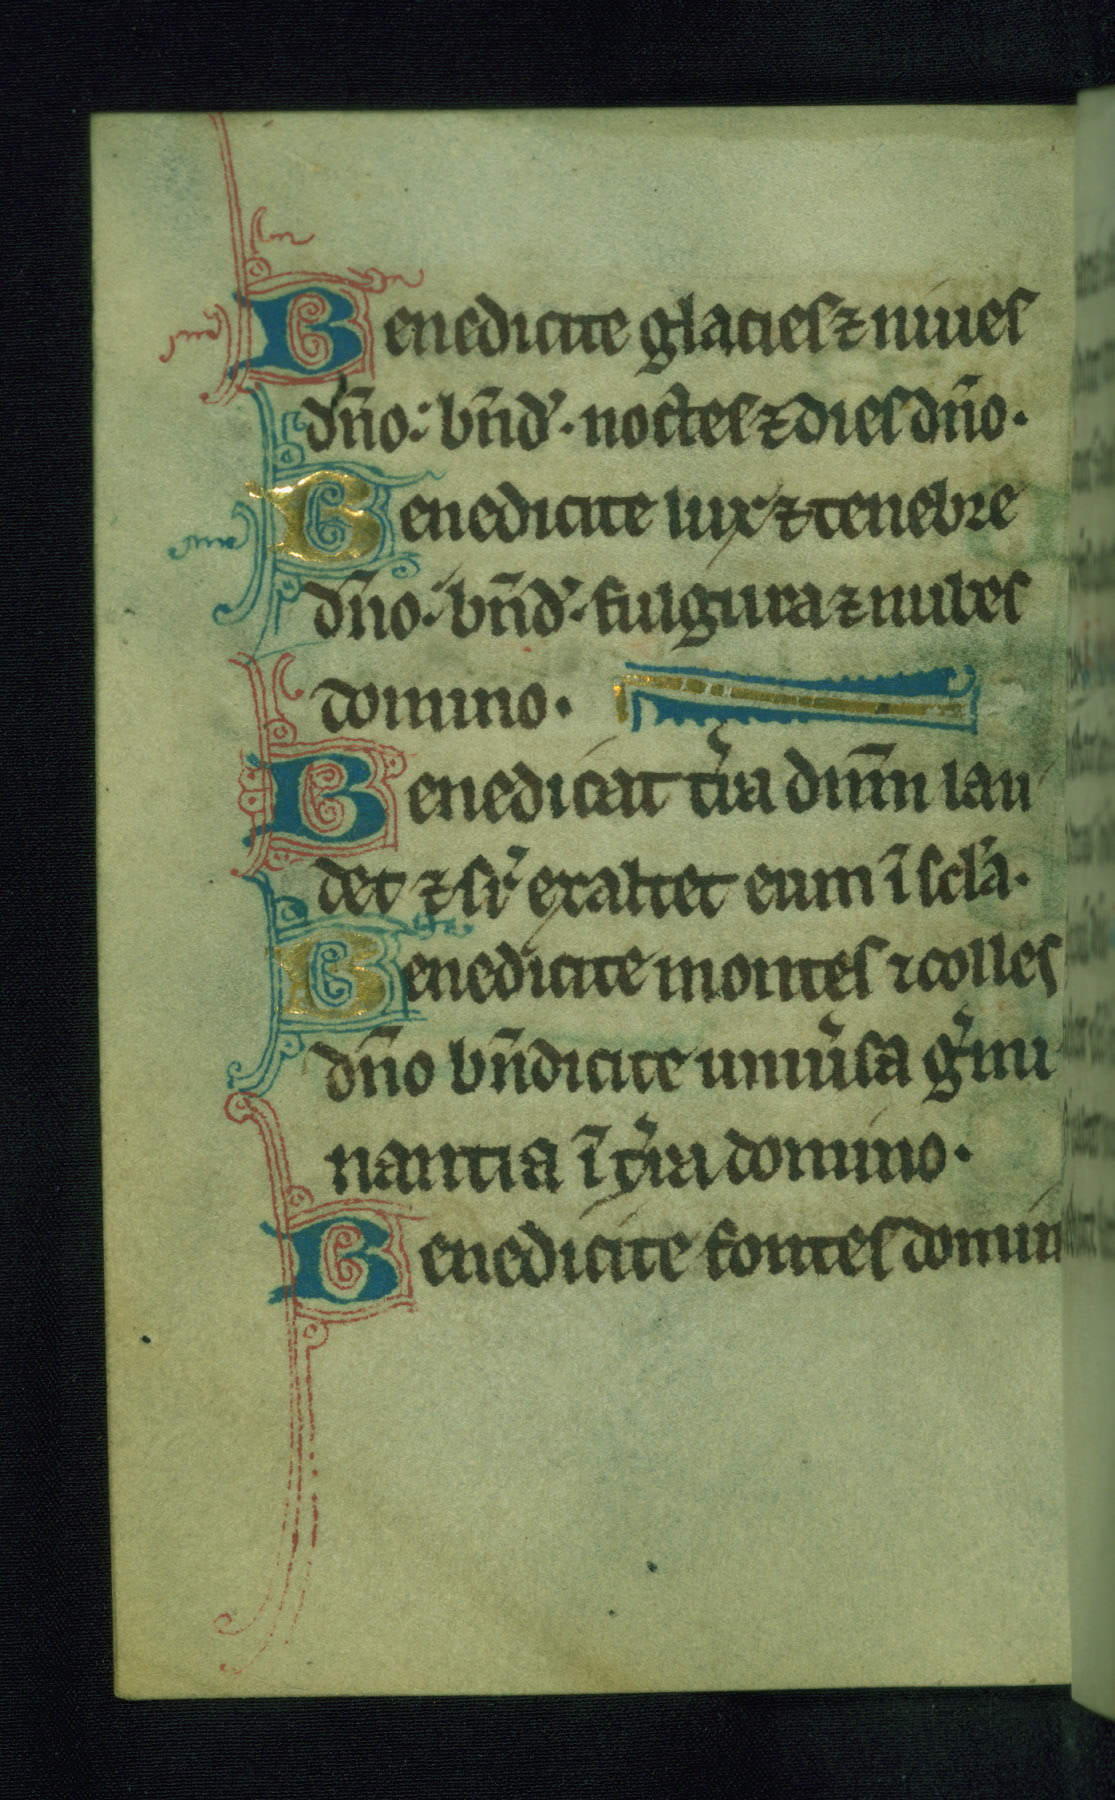 Benedicite glacies ⁊ niues
dn̄o: bn̄d᾽. noctes ⁊ dies dn̄o.
Benedicite lux ⁊ tenebre
dn̄o. bn̄d᾽. fulgura ⁊ nubes
domino.
Benedicat t̾ra dnm̄ lau
det ⁊ sr᾽ exaltet eum ī scl̾a.
Benedicite montes ⁊ colles
dn̄o bn̄dicite uniu̾sa g̾mi
nantia ī t̾ra domino.
Benedicite fontes domin